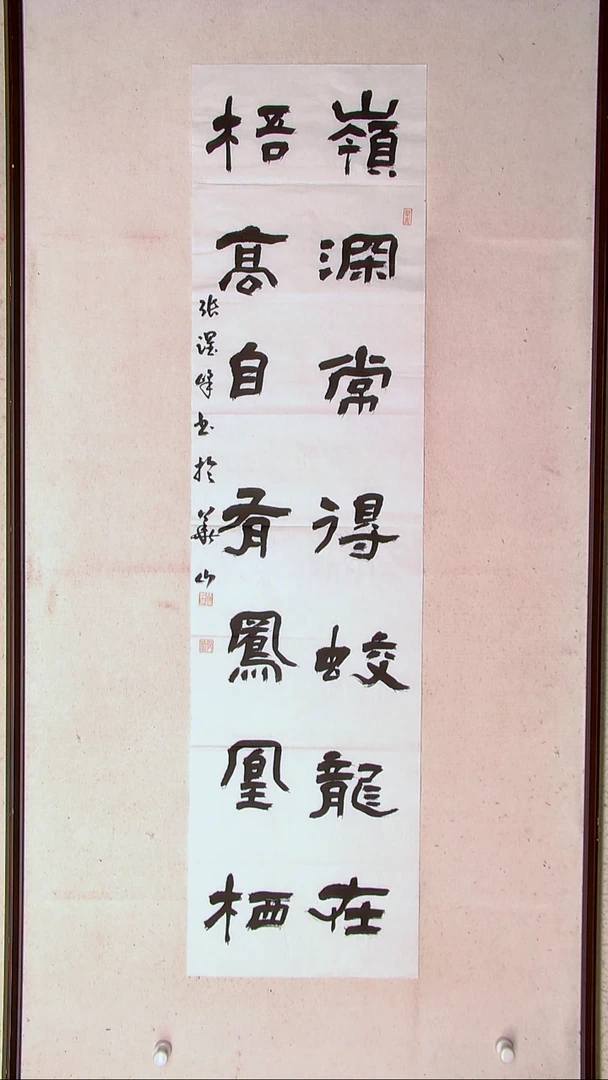 嶺深常得蛟龍在
梧高自有鳳凰栖
張 峰书於華山